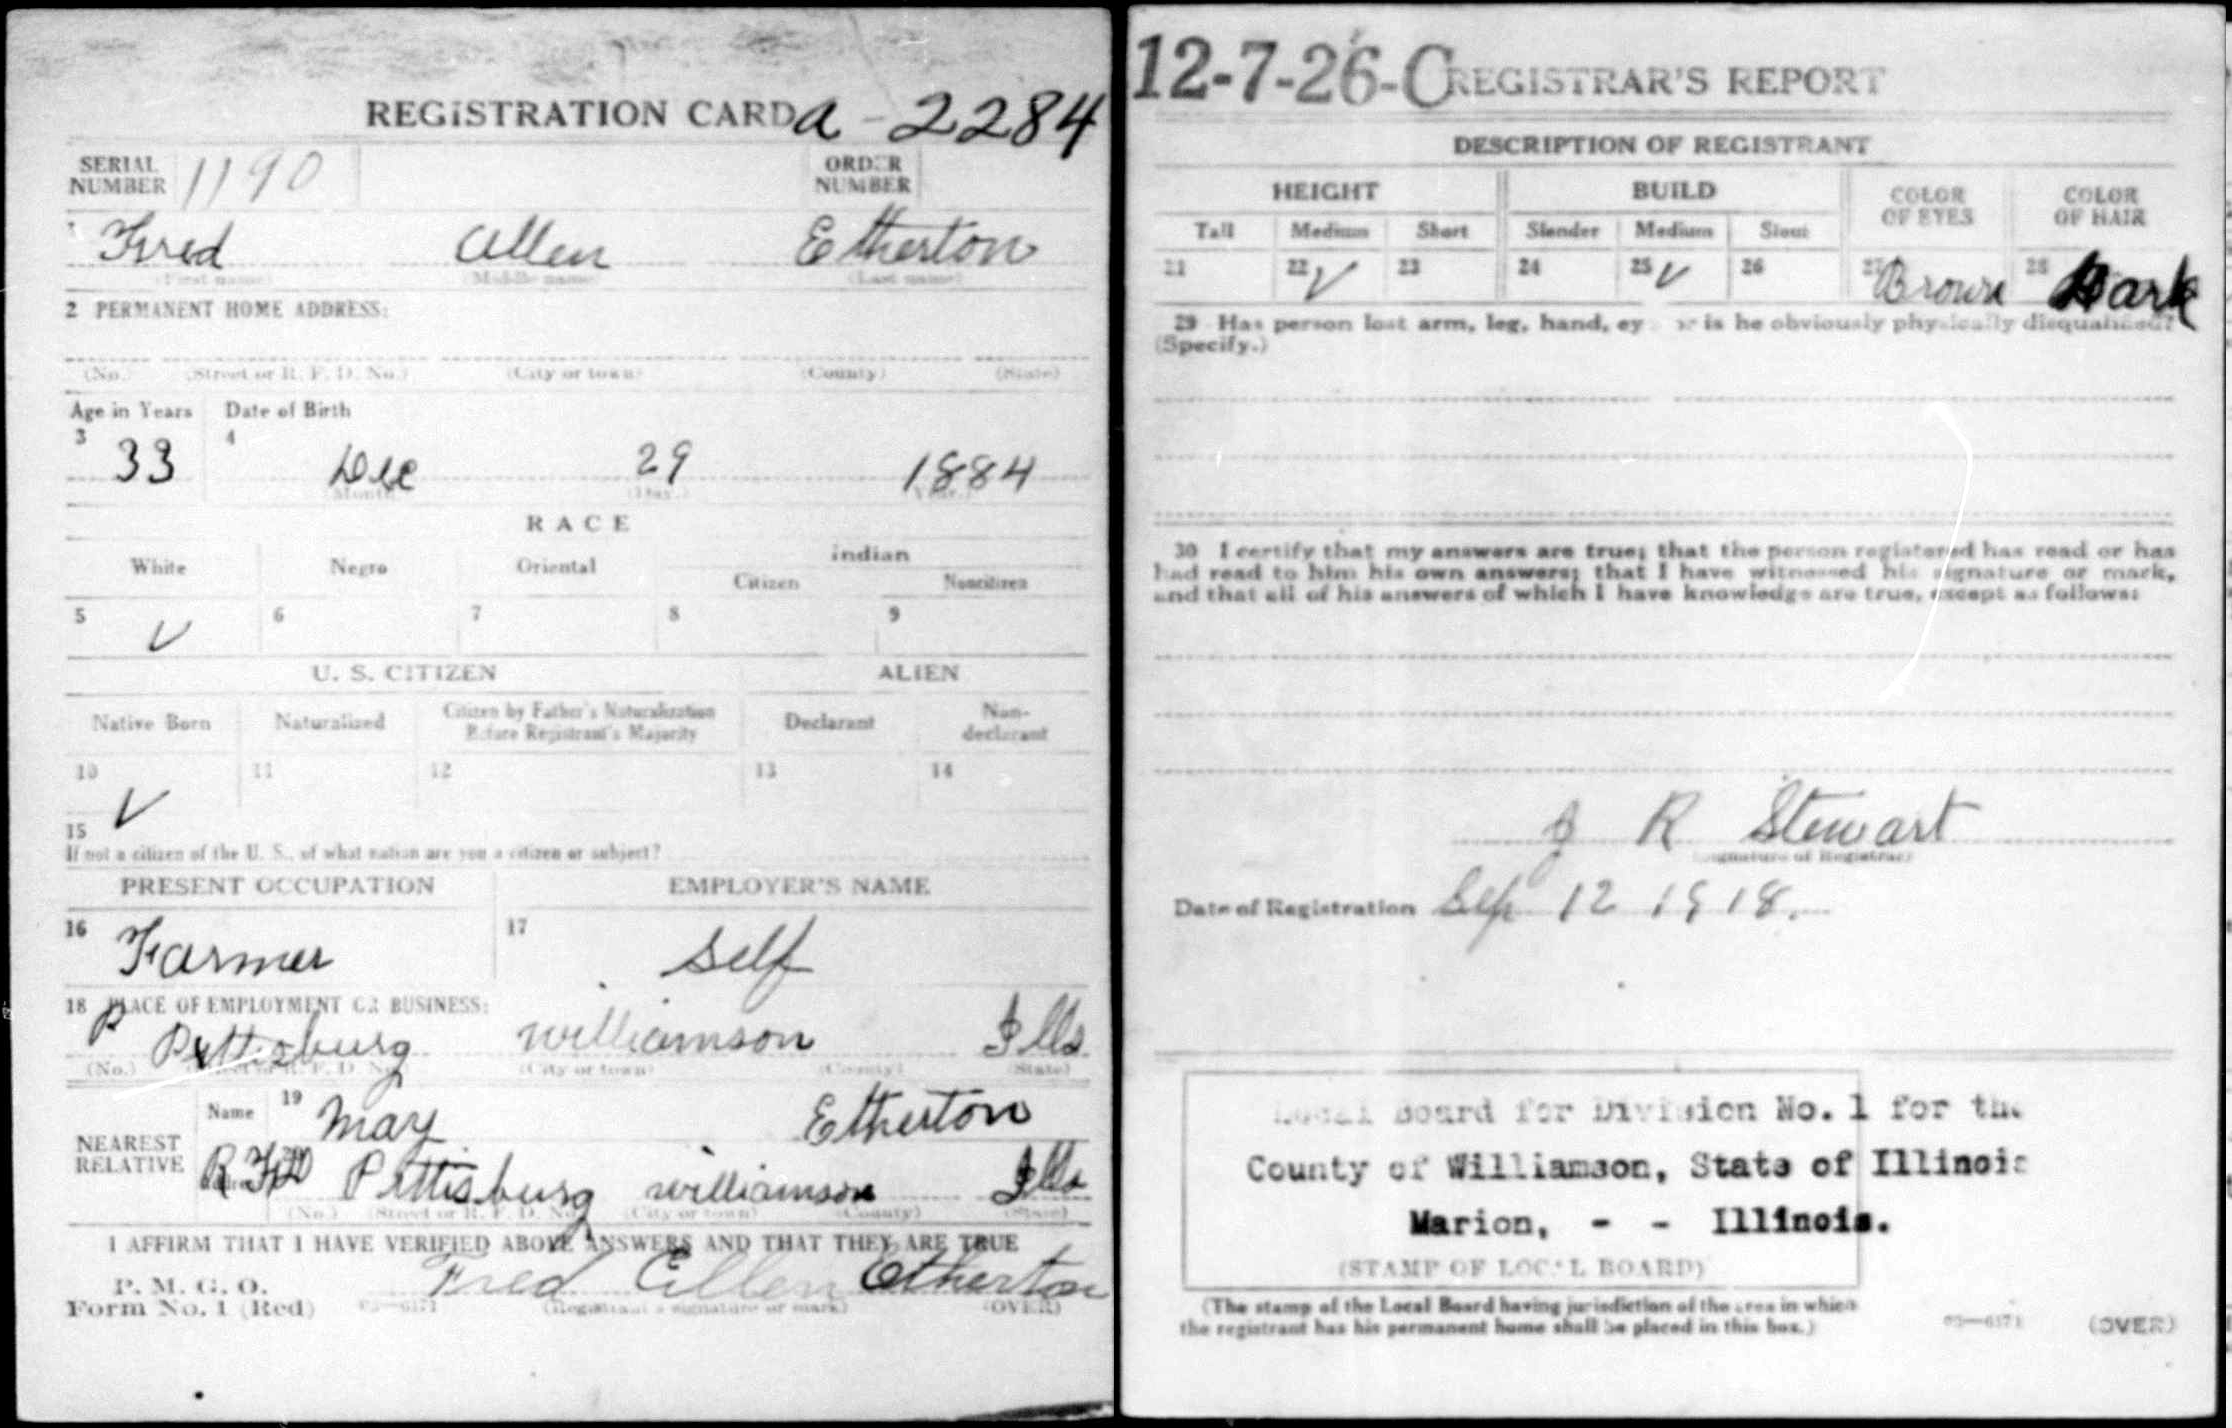 REGISTRATION CARD a - 2284
SERIAL NUMBER 1190 ORDER NUMBER
1 Fred Allen Etherton
(First name) (Middle name) (Last name)
2 PERMANENT HOME ADDRESS:
(No.) (Street or R. F. D. No.) (City or town) (County) (State)
Age in Years Date of Birth
3 33 4 Dec 29 1884
(Month.) (Day.) (Year.)
RACE
White Negro Oriental Indian
Citizen Noncitizen
5 V 6 7 8 9
U. S. CITIZEN ALIEN
Native Born Naturalized Citizen by Father's Naturalization Before Registrant's Majority Declarant Non-declarant
10 V 11 12 13 14
15
If not a citizen of the U. S., of what nation are you a citizen or subject?
PRESENT OCCUPATION EMPLOYER'S NAME
16 Farmer 17 Self
18 PLACE OF EMPLOYMENT OR BUSINESS:
Pittisburg Williamson Ills
(No.) (Street or R. F. D. No.) (City or town) (County) (State)
NEAREST RELATIVE
Name 19 May Etherton
RFD Pittisburg Williamson Ills
(No.) (Street or R. F. D. No.) (City or town) (County) (State)
I AFFIRM THAT I HAVE VERIFIED ABOVE ANSWERS AND THAT THEY ARE TRUE
P. M. G. O.
Form No. 1 (Red) 03—6171 Fred Allen Etherton
(Registrant's signature or mark) (OVER)
12-7-26-C REGISTRAR'S REPORT
DESCRIPTION OF REGISTRANT
HEIGHT BUILD COLOR OF EYES COLOR OF HAIR
Tall Medium Short Slender Medium Stout
21 22 V 23 24 25 V 26 27 Brown 28 Dark
29 Has person lost arm, leg, hand, eye, or is he obviously physically disqualified?
(Specify.)
30 I certify that my answers are true; that the person registered has read or has
had read to him his own answers; that I have witnessed his signature or mark,
and that all of his answers of which I have knowledge are true, except as follows:
J R Stewart
(Signature of Registrar)
Date of Registration Sep 12 1918.
Local Board for Division No. 1 for the
County of Williamson, State of Illinois
Marion, - - Illinois.
(STAMP OF LOCAL BOARD)
(The stamp of the Local Board having jurisdiction of the area in which
the registrant has his permanent home shall be placed in this box.)
03—6171 (OVER)